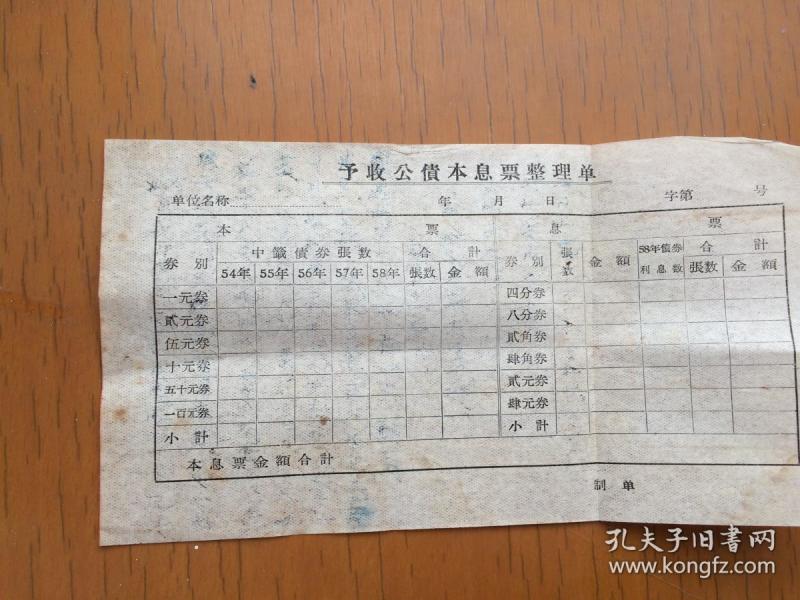 予收公債本息票整理单
单位名称 年 月 日 字第 号
本 票 息 票
券別 中籤債券張数 合計 券別 張数 金額 58年債券利息数 合計
54年 55年 56年 57年 58年 張数 金額 張数 金額
一元券 四分券
貳元券 八分券
伍元券 貳角券
十元券 肆角券
五十元券 貳元券
一百元券 肆元券
小計 小計
本息票金額合計
制单
孔夫子旧书网
www.kongfz.com